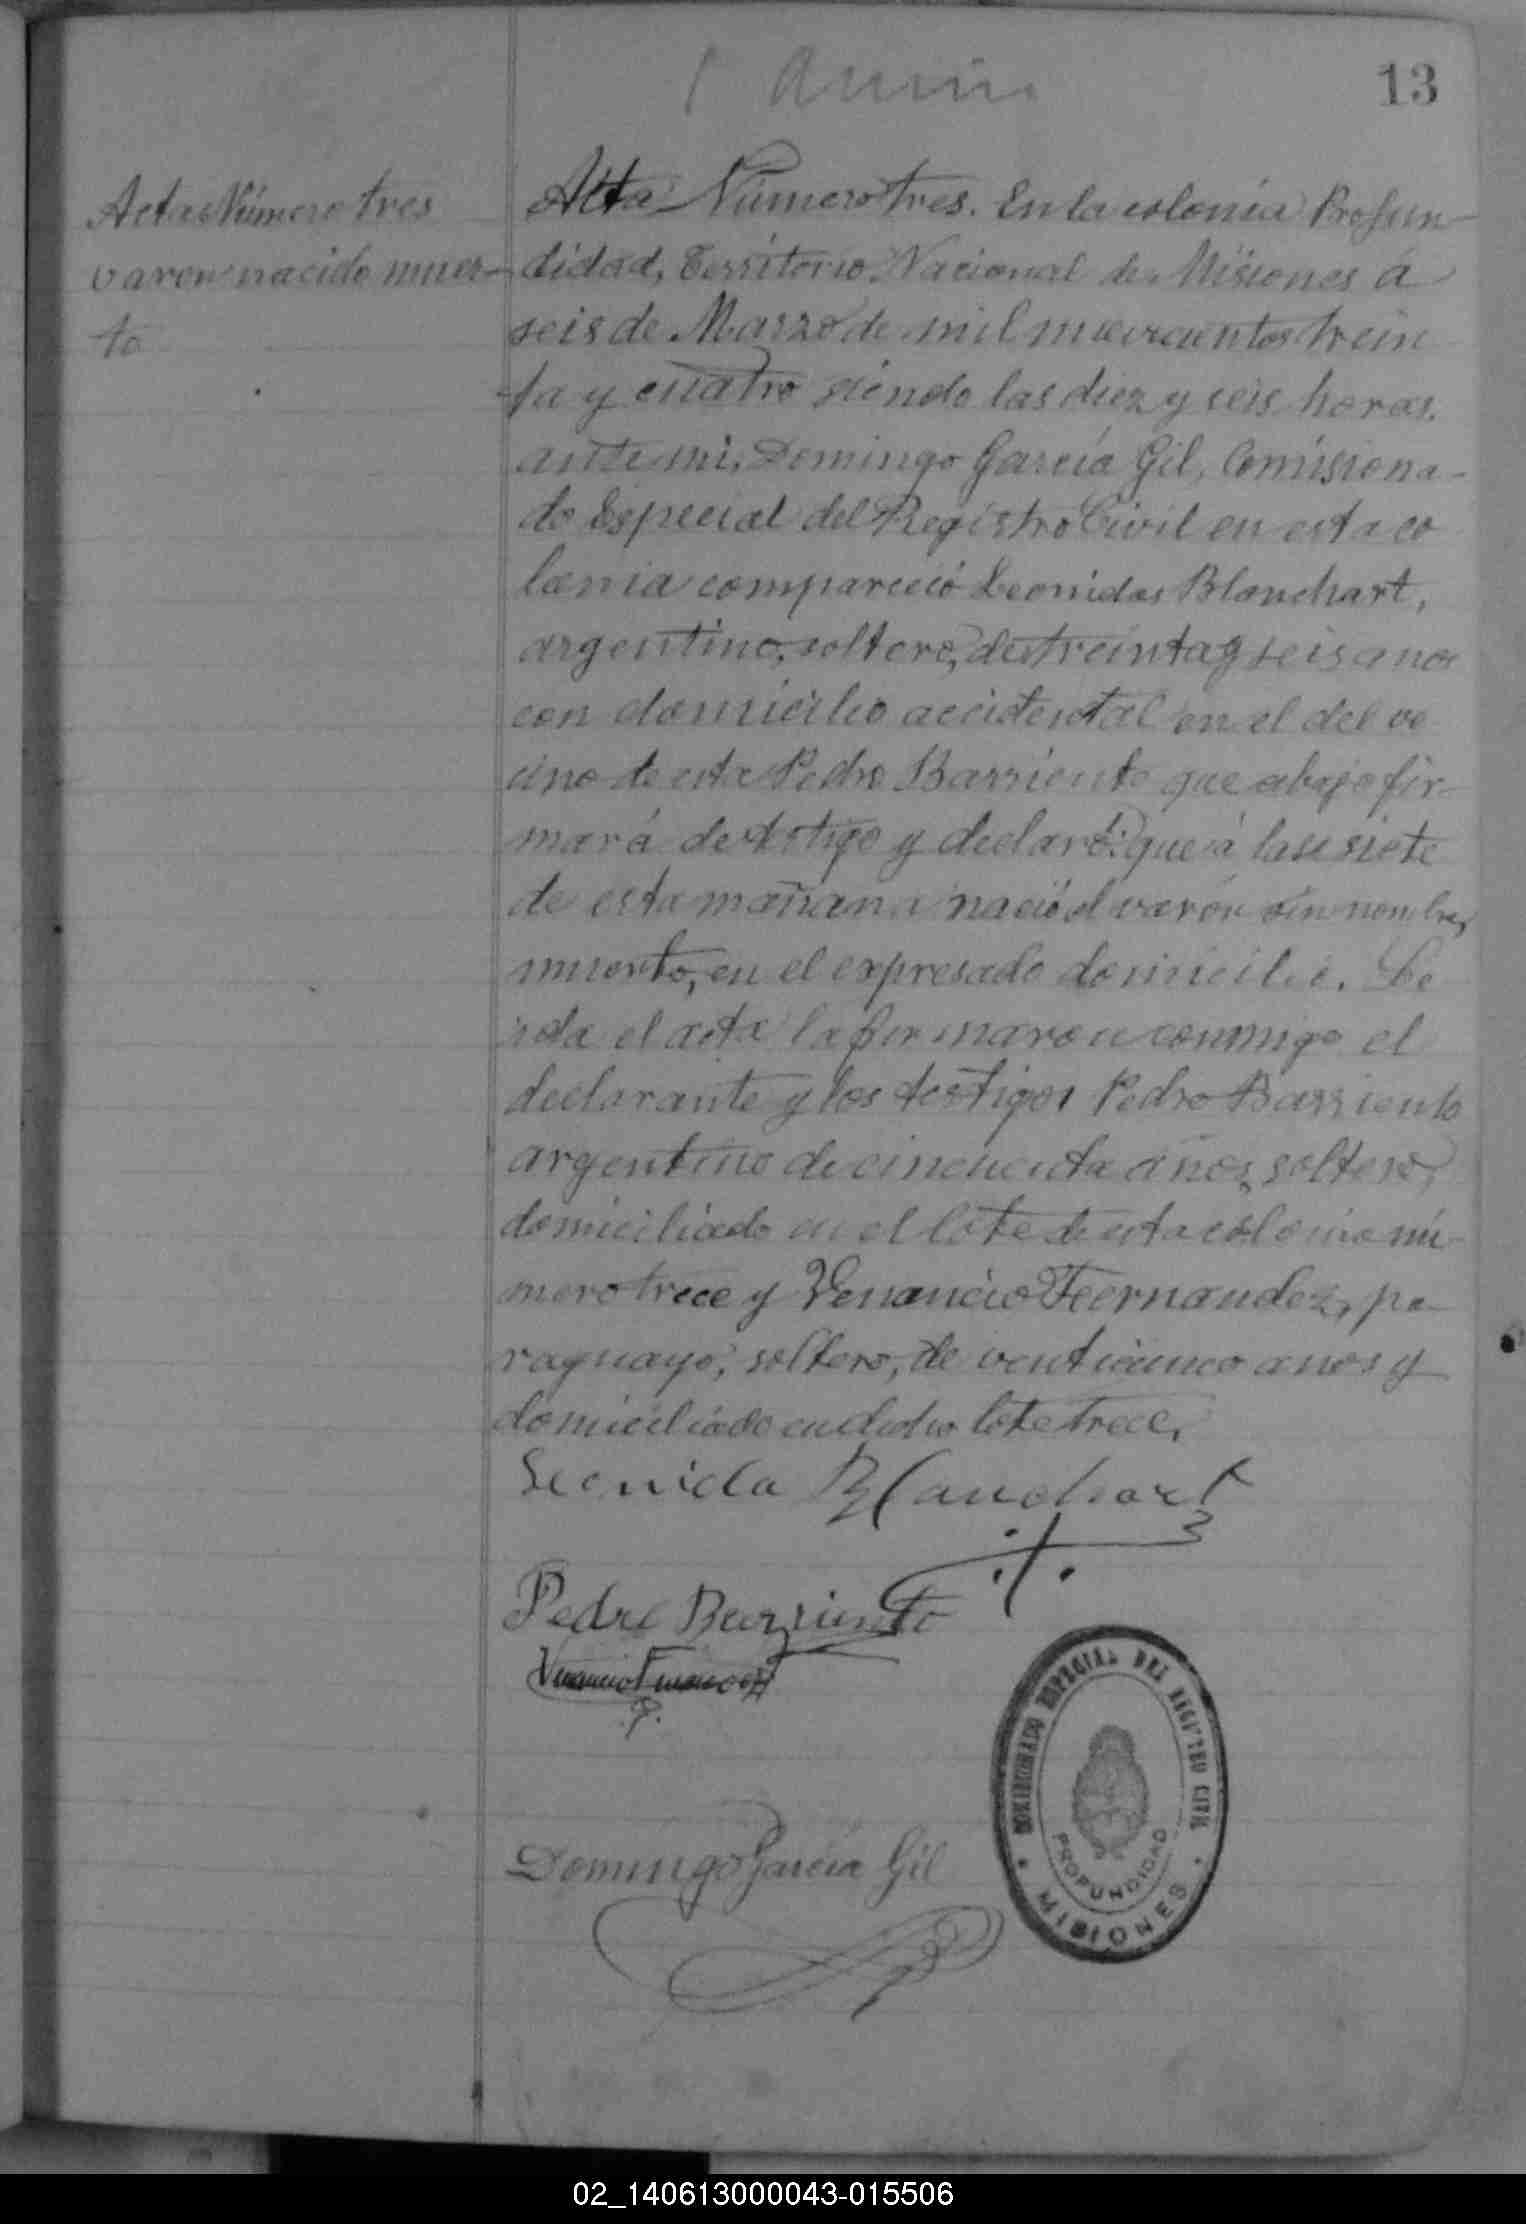 13
Acta Número tres
varon nacido muer-
to
Acta Número tres. En la colonia Profun-
didad, Territorio Nacional de Misiones á
seis de Marzo de mil nuevecientos trein
ta y cuatro siendo las diez y seis horas.
ante mi, Domingo García Gil, Comisiona-
do Especial del Registro Civil en esta co
lonia compareció Leonidas Blanchart,
argentino, soltero, de treinta y seis anos
con domicilio accidental en el del ve
cino de esta Pedro Barriento que abajo fir-
mará de testigo y declaró: que á las siete
de esta mañana nació el varón sin nombre,
muerto, en el expresado domicilio. Le
ida el acta la firmaron conmigo el
declarante y los testigos Pedro Barriento
argentino de cincuenta años, soltero,
domiciliado en el lote de esta colonia nú-
mero trece y Venancio Fernandez, pa-
raguayo, soltero, de venticinco anos y
domiciliado en dicho lote trece.
Leonida Blanchart
Pedro Barriento
Venancio
Domingo García Gil
COMISIONADO ESPECIAL DEL REGISTRO CIVIL
PROFUNDIDAD
MISIONES
02_140613000043-015506